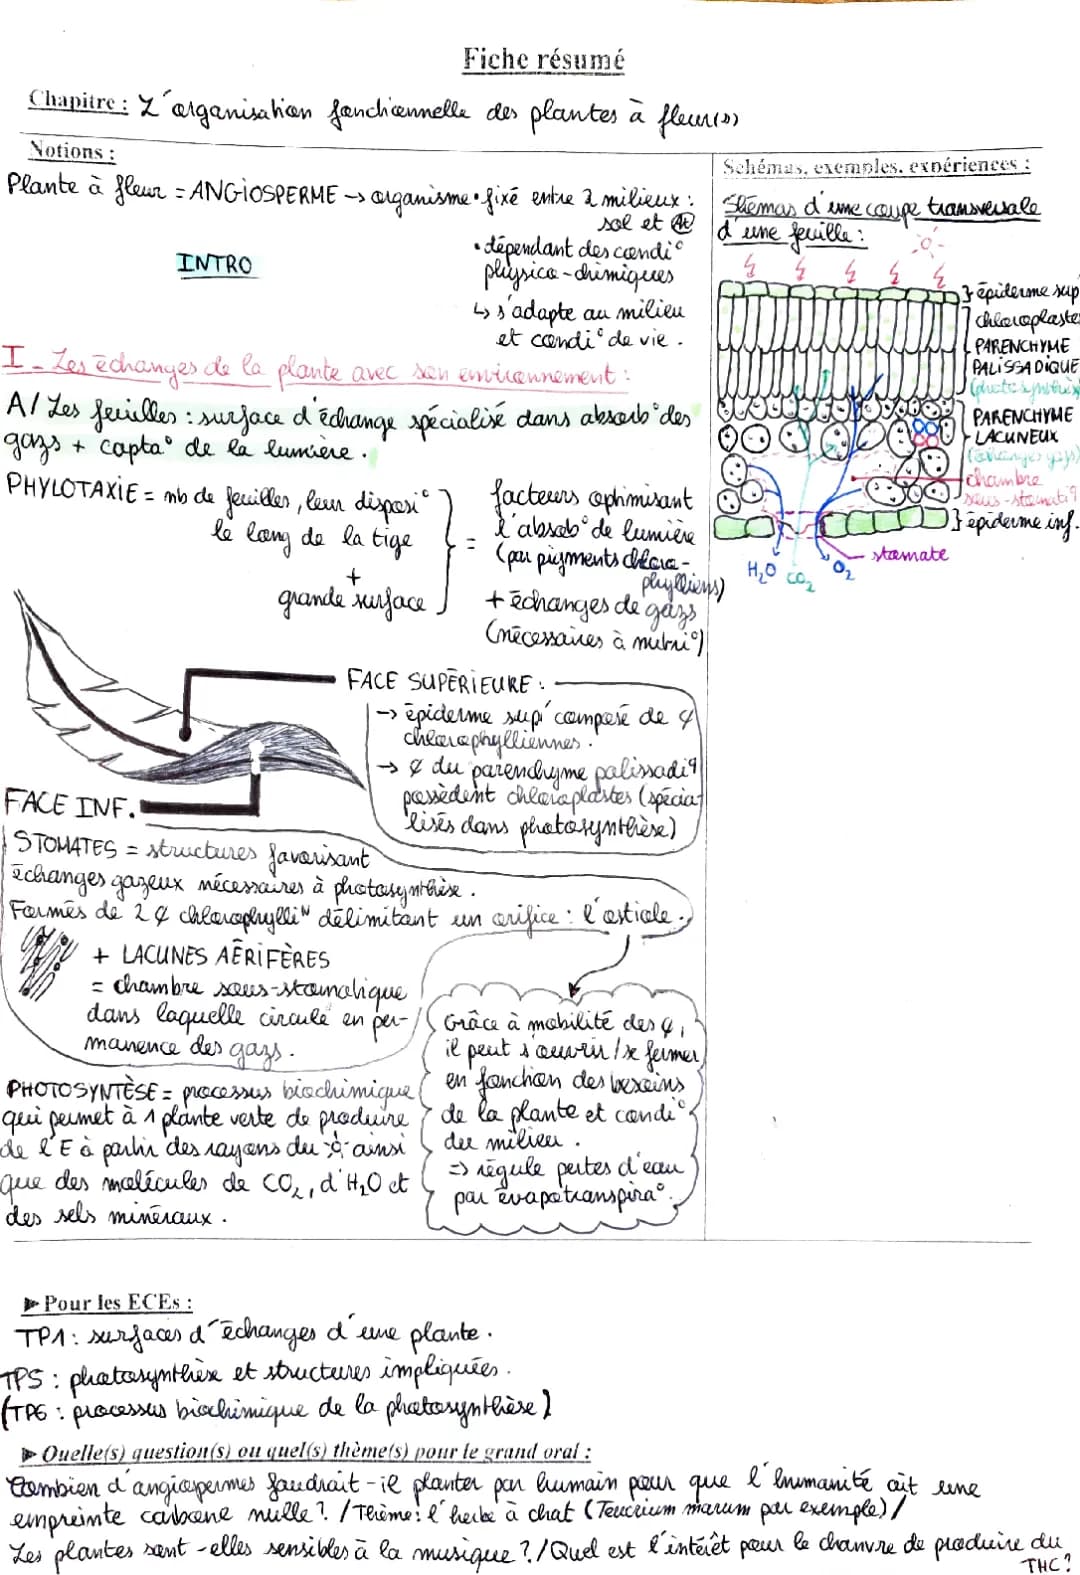 Fiche résumé
Chapitre : L'organisation fonctionnelle des plantes à fleur(s)
Notions :
Plante à fleur = ANGIOSPERME → organisme • fixé entre 2 milieux :
sol et At
• dépendant des condi°
physico-chimiques
↳ s'adapte au milieu
et condi° de vie.
INTRO
I - Les échanges de la plante avec son environnement :
A/ Les feuilles : surface d'échange spécialisé dans absorb° des
gazs + capta° de la lumière.
PHYLOTAXIE = nb de feuilles, leur disposi°
le long de la tige
+
grande surface
= facteurs optimisant
l'absob° de lumière
(par pigments chloro-
phylliens)
+ échanges de gazs
(nécessaires à nutri°)
FACE SUPÉRIEURE :
→ épiderme sup' composé de ¢
chlorophylliennes.
→ ¢ du parenchyme palissadiq
possèdent chloroplastes (spécia-
lisés dans photosynthèse)
FACE INF.
STOMATES = structures favorisant
échanges gazeux nécessaires à photosynthèse.
Formés de 2 ¢ chlorophylliN délimitant un orifice : l'ostiole.
+ LACUNES AÉRIFÈRES
= chambre sous-stomatique
dans laquelle circule en per-
manence des gazs.
Grâce à mobilité des ¢,
il peut s'ouvrir / se fermer
en fonction des besoins
de la plante et condi°
du milieu.
=> régule pertes d'eau
par évapotranspira°.
PHOTOSYNTÈSE = processus biochimique
qui permet à 1 plante verte de produire
de l'E à partir des rayons du ainsi
que des molécules de CO₂, d'H₂O et
des sels minéraux.
Schémas, exemples, expériences :
Shémas d'une coupe transversale
d'une feuille :
épiderme sup
chloroplastes
PARENCHYME
PALISSADIQUE
(photosynthèse)
PARENCHYME
LACUNEUX
(échanges gazs)
chambre
sous-stomatiq
épiderme inf.
stomate
H₂O CO₂ O₂
► Pour les ECEs :
TP1 : surfaces d'échanges d'une plante.
TP5 : photosynthèse et structures impliquées.
(TP6 : processus biochimique de la photosynthèse)
► Quelle(s) question(s) ou quel(s) thème(s) pour le grand oral :
Combien d'angiospermes faudrait-il planter par humain pour que l'humanité ait une
empreinte carbone nulle ? / Thème : l'herbe à chat (Teucrium marum par exemple) /
Les plantes sont-elles sensibles à la musique ? / Quel est l'intérêt pour le chanvre de produire du
THC ?